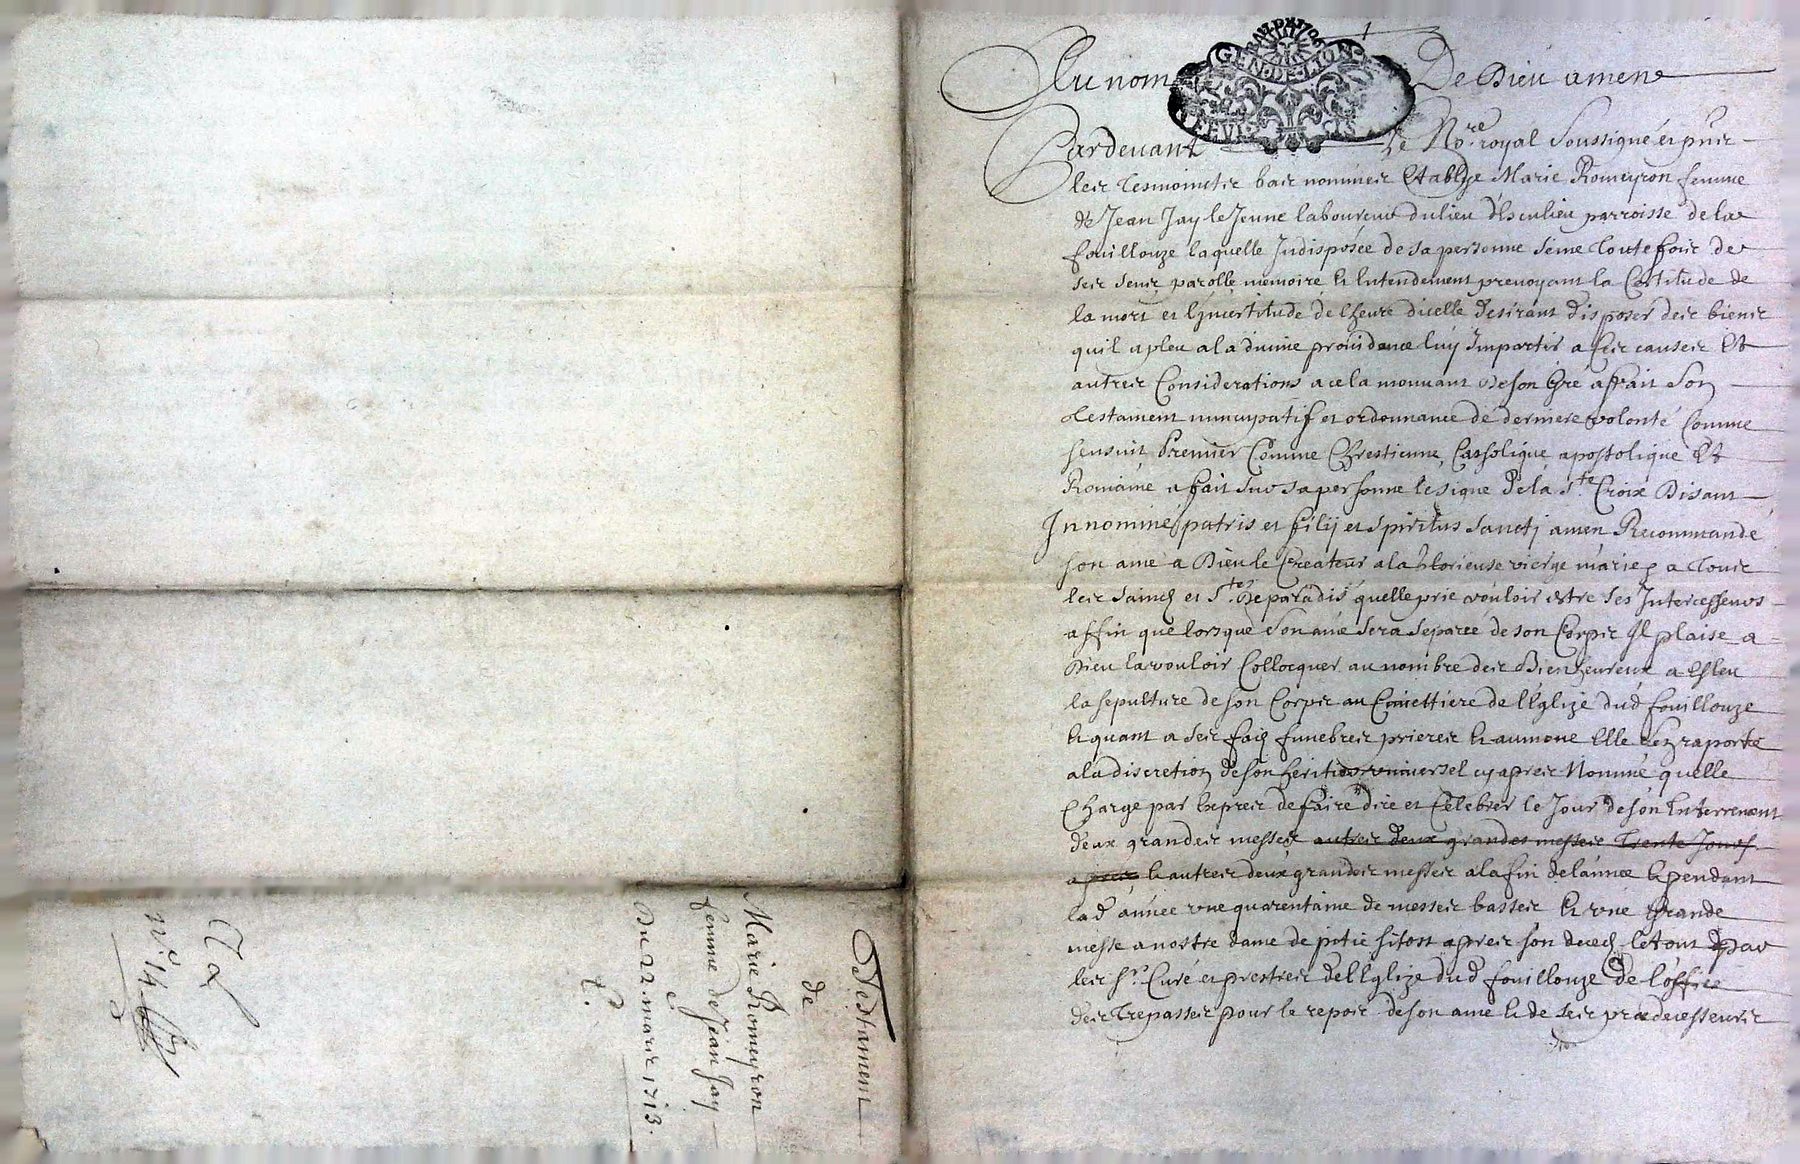 Testament
de
Marie Romeyron
femme de Jean Jay
Du 22. mars 1713.
n.º 14
GEN·DE·LION
Au nom De Dieu amen
Pardevant Le No.re royal Soussigné et pnts
les tesmoingts bas nommes Establye Marie Romeyron femme
de Jean Jay le Jeune laboureur du lieu parroisse de la
fouillouze laquelle Indisposée de sa personne seine toutefois de
ses sens parolle memoire et Entendement prevoyant la Certitude de
la mort et l'jncertitude de l'heure dicelle desirant disposer des biens
quil a pleu a la divine providence luy Impartir a ses causes Et
autres Considerations a ce la mouvant de son Gré a ffait Son
testament nuncupatif et ordonnance de derniere volonté Comme
sensuit Premier Comme Chrestienne Catholique apostolique Et
Romaine a fait sur sa personne le signe de la S.te Croix Disant
In nomine patris et filij et spiritus sanctj amen Recommandé
son ame a Dieu le Createur a la Glorieuse vierge marie a tous
les saincts et S.tes de paradis quelle prie vouloir estre ses Intercesseurs
affin que lorsque son ame sera separée de son Corps Il plaise a
Dieu la vouloir Collocquer au nombre des Bienheureux a Esleu
la sepulture de son Corps au Cimettiere de lEglize dud fouillouze
Et quant a ses fraiz funebres prieres Et aumone Elle sen raporte
a la discretion de son heritier universel cy apres Nommé quelle
Charge par Expres de faire dire et Celebrer le Jour de son Enterrement
deux grandes messes autres deux grandes messes trente Jours
apres Et autres deux grandes messes a la fin de lannée Et pendant
lad année une quarentaine de messes basses Et une Grande
messe a nostre dame de pitié sitost apres son deced le tout par
les Srs Curé et prestres de lEglize dud fouillouze de l'office
des trepasses pour le repos de son ame Et de ses predecesseurs